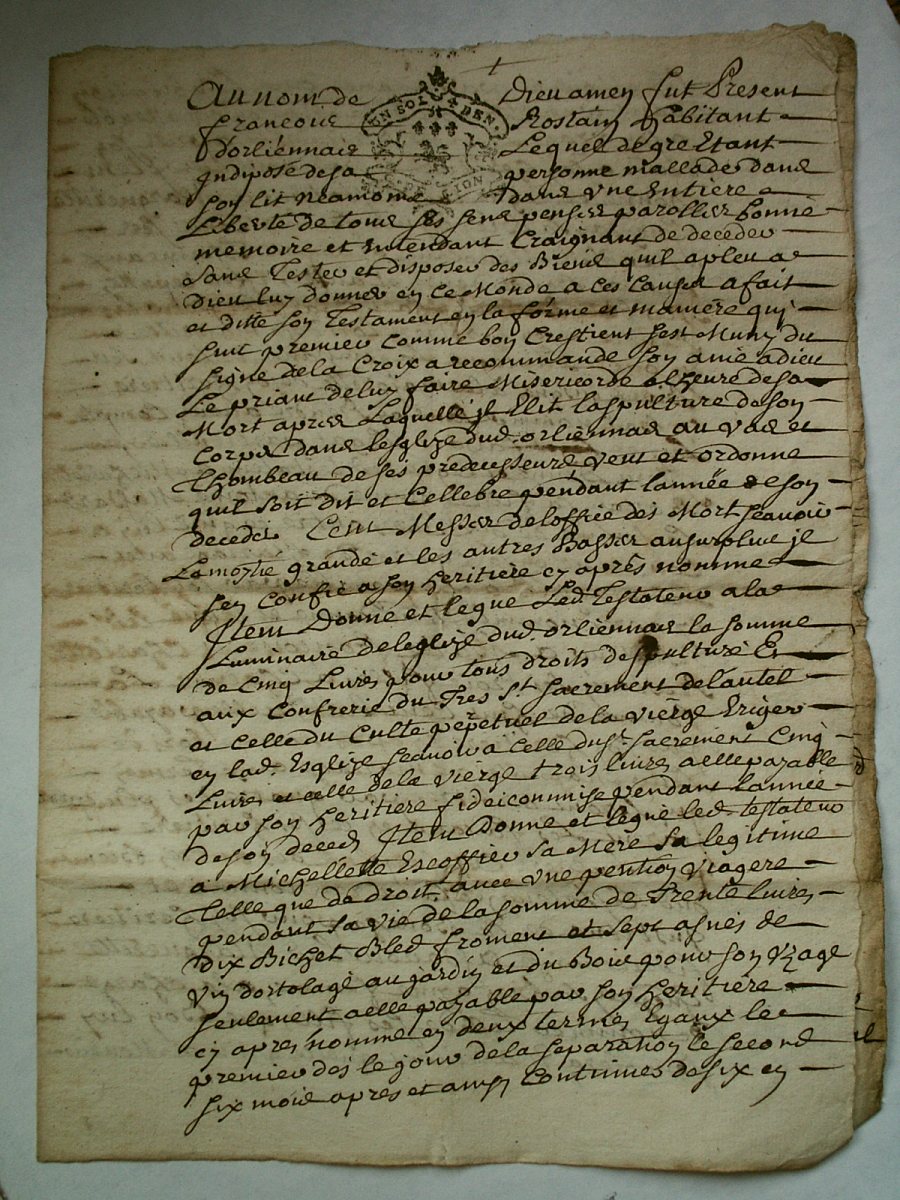 Au nom de Dieu amen fut Present
UN SOL 4 DEN.
francois Rostain habitant
dorliennas Lequel de gre Etant
Indiposé de sa personne mallade dans
son lit neamoins dans une Entiere
Liberté de tous ses sens pensees parolles bonne
memoire et entendant Craignant de deceder
sans Tester et disposer des Biens quil a pleu a
dieu luy donner en ce Monde a ces causes a fait
et ditte son Testament en la forme et maniere qui
suit premier comme bon Crestient sest Muny du
signe de la Croix a recommande son ame a dieu
Le priant de luy faire Misericorde a lheure de sa
Mort apres Laquelle il Elit la spulture de son
Corps dans lesglize dud. orliennas au vas et
thombeau de ses predecesseurs veut et ordonne
quil soit dit et Cellebre pendant lannée de son
decedes Cent Messes de loffice des Mort scavoir
Lamoytié grande et les autres Basses au surplus je
sen Confie a son heritiere cy après nomme
Item Donne et legue Led. Testateur a la
Luminaire de leglize dud. orliennas la somme
de Cinq Livres pour tous droits de spulture Et
aux Confrerie du Tres St sacrement de lautel
et celle du Culte perpetuel de la vierge Eriger
en lad. Esglize scavoir a celle du St. sacrement Cinq
Livres et celle de la vierge trois livres a elle payable
par son heritiere fideicommise pendant lannée
de son deced Item Donne et legue led. testateur
a Michellette Escoffier sa Mere sa legitime
Telle que de droit avec une pention viagere
pendant sa vie de la somme de Trente livres
dix Bichet Bled froment et sept asnés de
vin dortolage au jardin et du Bois pour son uzage
seulement a elle payable par son heritiere
cy apres nomme en deux termes Egaux le
premier des le jour de la separation le second
six mois apres et ainsy continues de six en